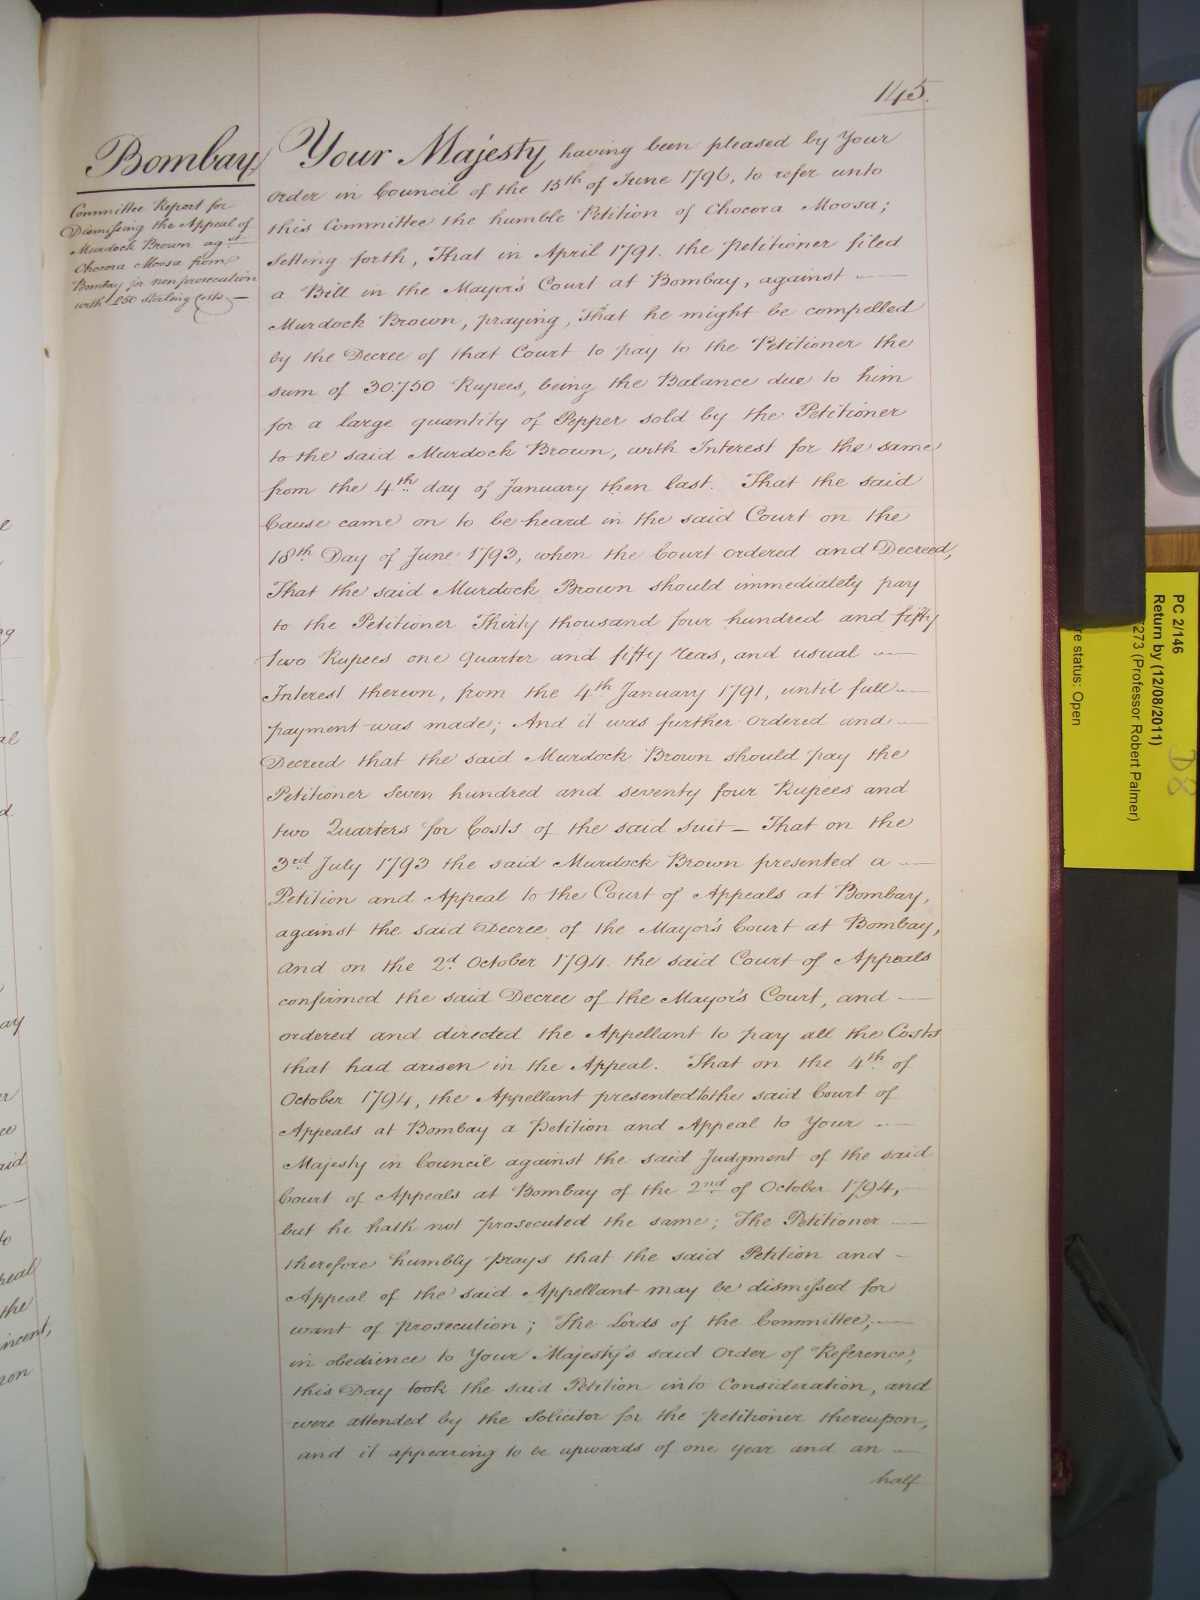 145.
Bombay
Committee Report for
Dismissing the Appeal of
Murdock Brown agst
Chocora Moosa from
Bombay for non prosecution
with £50 sterling Costs —
Your Majesty having been pleased by Your
Order in Council of the 15th of June 1796, to refer unto
this Committee the humble Petition of Chocora Moosa;
setting forth, That in April 1791. the petitioner filed
a Bill in the Mayor's Court at Bombay, against —
Murdock Brown, praying, that he might be compelled
by the Decree of that Court to pay to the Petitioner the
sum of 30750 Rupees, being the Balance due to him
for a large quantity of Pepper sold by the Petitioner
to the said Murdock Brown, with Interest for the same
from the 4th day of January then last. That the said
Cause came on to be heard in the said Court on the
18th Day of June 1793, when the Court ordered and Decreed,
That the said Murdock Brown should immediately pay
to the Petitioner Thirty thousand four hundred and fifty
two Rupees one quarter and fifty reas, and usual —
Interest thereon, from the 4th January 1791, until full —
payment was made; And it was further ordered and —
Decreed that the said Murdock Brown should pay the
Petitioner Seven hundred and seventy four Rupees and
two Quarters for Costs of the said suit — That on the
3rd July 1793 the said Murdock Brown presented a —
Petition and Appeal to the Court of Appeals at Bombay,
against the said Decree of the Mayor's Court at Bombay,
and on the 2d October 1794. the said Court of Appeals
confirmed the said Decree of the Mayor's Court, and —
ordered and directed the Appellant to pay all the Costs
that had arisen in the Appeal. That on the 4th of
October 1794, the Appellant presented to the said Court of
Appeals at Bombay a Petition and Appeal to Your —
Majesty in Council against the said Judgment of the said
Court of Appeals at Bombay of the 2nd of October 1794, —
but he hath not prosecuted the same; The Petitioner —
therefore humbly prays that the said Petition and —
Appeal of the said Appellant may be dismissed for
want of prosecution; The Lords of the Committee, —
in obedience to Your Majesty's said Order of Reference,
this Day took the said Petition into Consideration, and
were attended by the Solicitor for the petitioner thereupon,
and it appearing to be upwards of one year and an —
half
PC 2/146
Return by (12/08/2011)
273 (Professor Robert Palmer)
re status: Open
D8